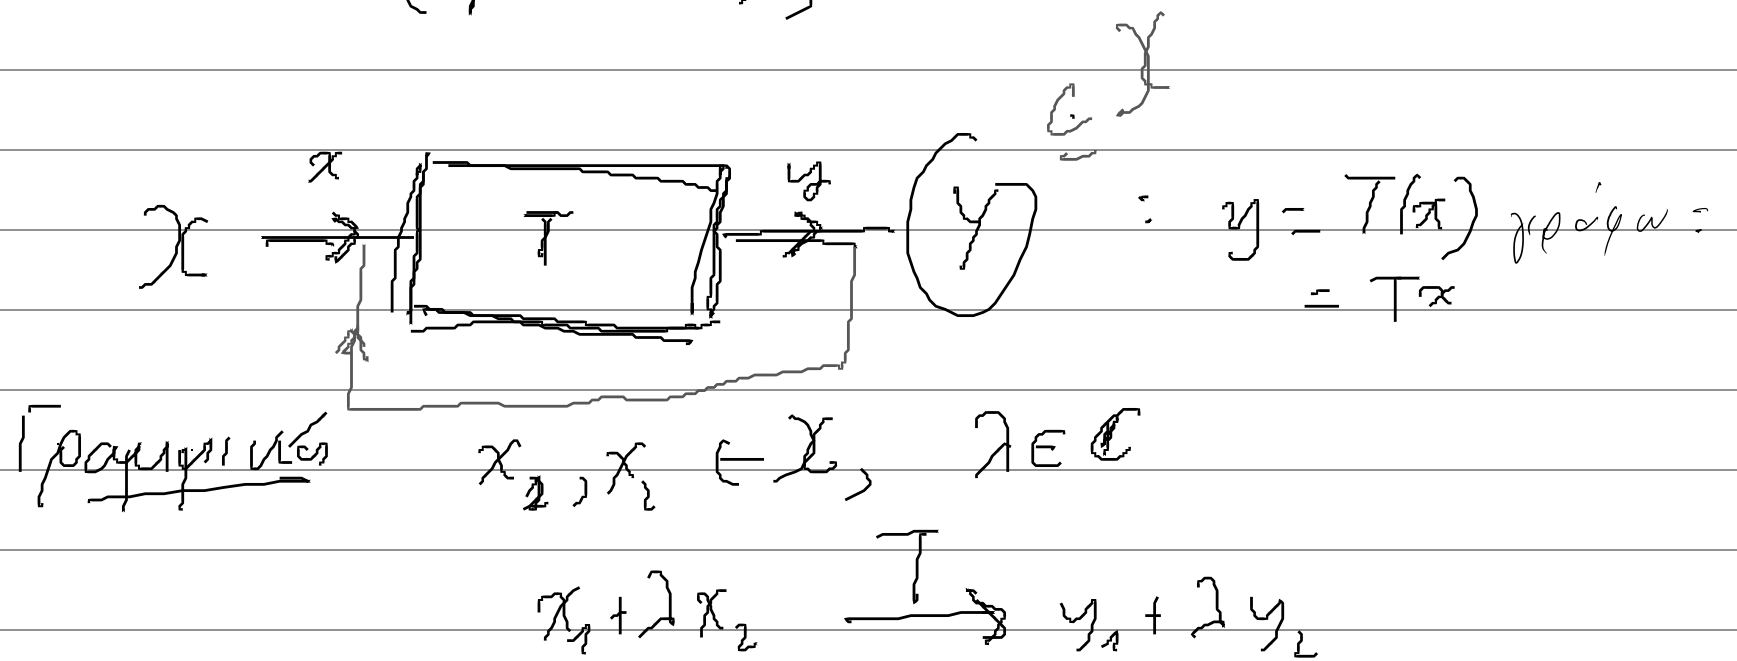 x y
X → T → Y : y = T(x) γράφω =
= Tx
Γραμμικό x₁, x₂ ∈ X, λ ∈ ℂ
T
x₁ + λx₂ → y₁ + λy₂